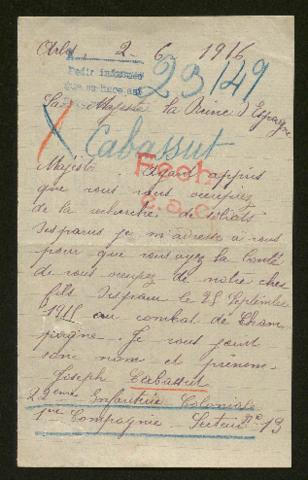 Arles 2 - 6 1916
Pedir informes
23/49
Sa Majesté la Reine d'Espagne
Cabassut
Fech
C.a.C.
Majesté Ayant appris
que vous vous occupiez
de la recherche de soldats
disparus je m'adresse a vous
pour que vous ayez la bonté
de vous occupez de notre cher
fils disparu le 25 Septembre
1915 au combat de Cham
pagne. Je vous joint
son nom et prénom.
Joseph Cabassut
22eme Infanterie Coloniale
1re Compagnie - Secteur No 13